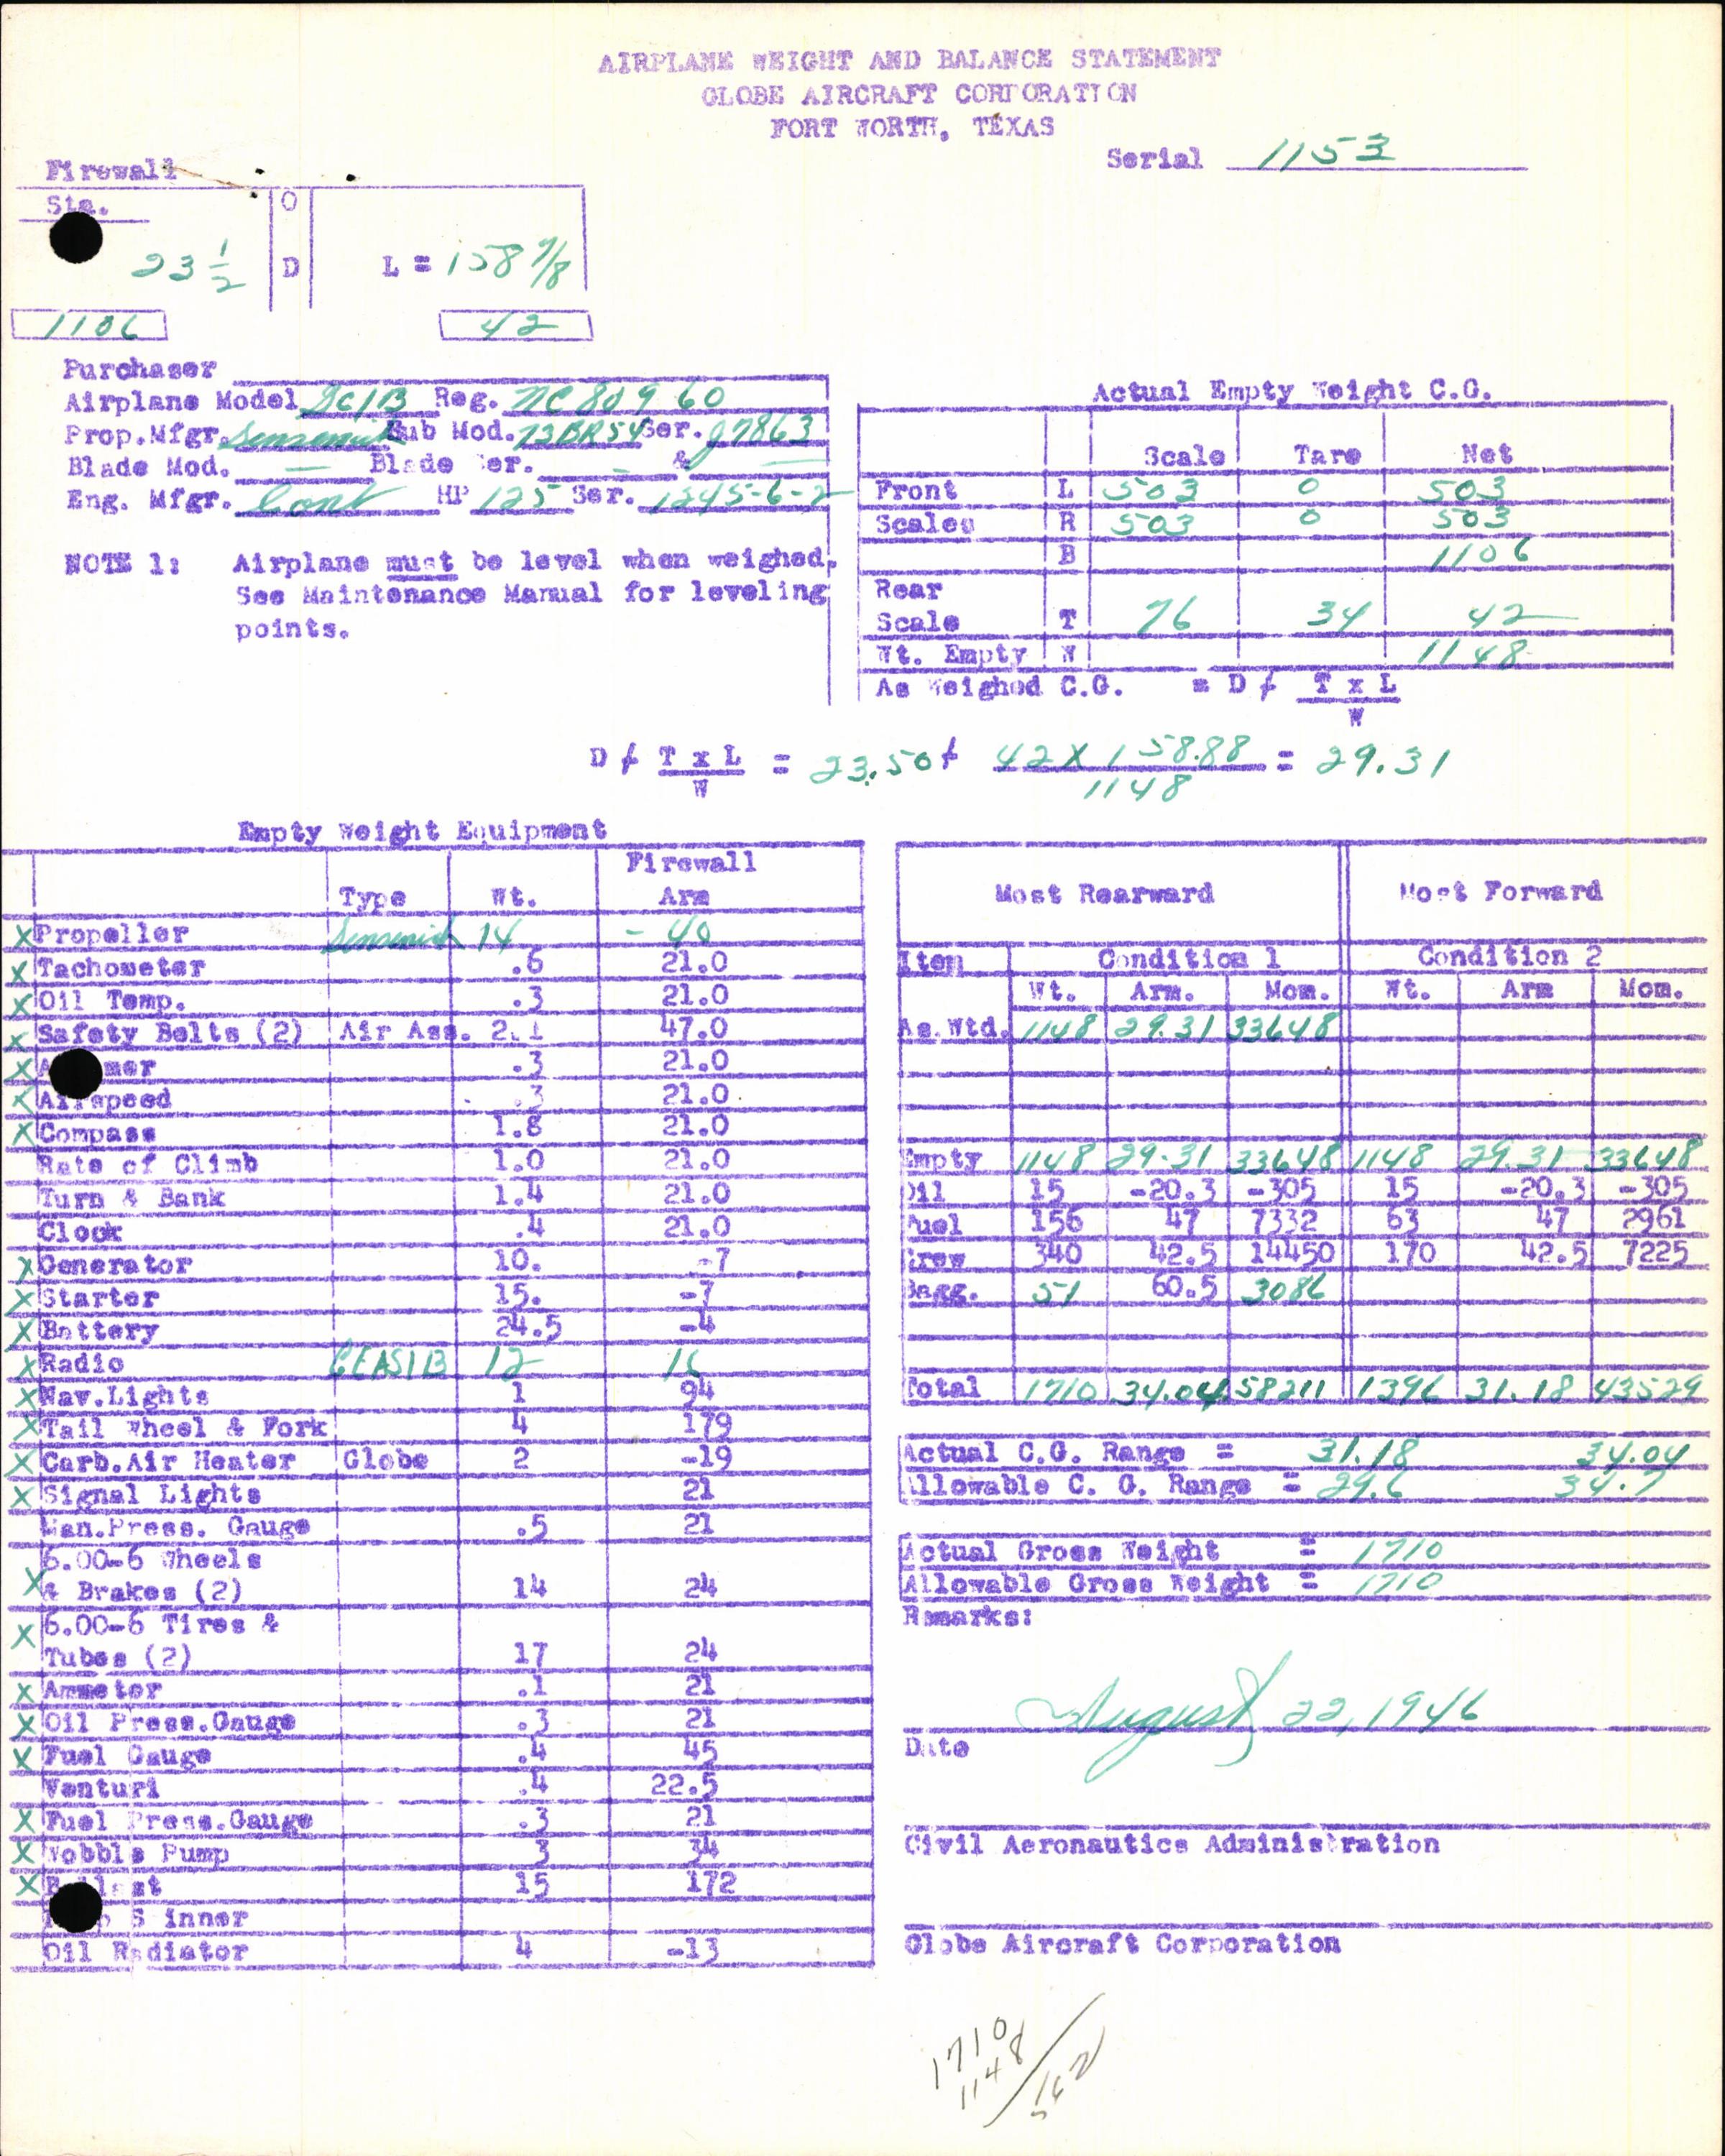 AIRPLANE WEIGHT AND BALANCE STATEMENT
GLOBE AIRCRAFT CORPORATION
FORT WORTH, TEXAS
Serial 1153
Firewall
Sta. O
23 1/2 D L = 158 7/8
1106 42
Purchaser
Airplane Model GC1B Reg. NC 80960
Prop.Mfgr. Sensenich Hub Mod. 73BR54 Ser. 27863
Blade Mod. — Blade Ser. - & —
Eng. Mfgr. Cont HP 125 Ser. 1245-6-2
NOTE 1: Airplane must be level when weighed,
See Maintenance Manual for leveling
points.
Actual Empty Weight C.G.
Scale Tare Net
Front L 503 0 503
Scales R 503 0 503
B 1106
Rear
Scale T 76 34 42
Wt. Empty W 1148
As Weighed C.G. = D ≠ T x L
W
D ≠ T x L = 23.50 ≠ 42 X 158.88 = 29.31
W 1148
Empty Weight Equipment
Firewall
Type Wt. Arm
X Propeller Sensenich 14 - 40
X Tachometer .6 21.0
X Oil Temp. .3 21.0
X Safety Belts (2) Air Ass. 2.1 47.0
X .3 21.0
X Airspeed .3 21.0
X Compass 1.8 21.0
Rate of Climb 1.0 21.0
Turn & Bank 1.4 21.0
Clock .4 21.0
X Generator 10. -7
X Starter 15. -7
X Battery 24.5 -4
X Radio GEAS1B 12 16
X Nav.Lights 1 94
X Tail Wheel & Fork 4 179
X Carb.Air Heater Globe 2 -19
X Signal Lights 21
Man.Press. Gauge .5 21
6.00-6 Wheels
X & Brakes (2) 14 24
X 6.00-6 Tires &
Tubes (2) 17 24
X Ammeter .1 21
X Oil Press.Gauge .3 21
X Fuel Gauge .4 45
Venturi .4 22.5
X Fuel Press.Gauge .3 21
X Wobble Pump 3 34
X Ballast 15 172
S inner
Oil Radiator 4 -13
Most Rearward Most Forward
Item Condition 1 Condition 2
Wt. Arm. Mom. Wt. Arm Mom.
As Wtd. 1148 29.31 33648
Empty 1148 29.31 33648 1148 29.31 33648
Oil 15 -20.3 -305 15 -20.3 -305
Fuel 156 47 7332 63 47 2961
Crew 340 42.5 14450 170 42.5 7225
Bagg. 51 60.5 3086
Total 1710 34.04 58211 1396 31.18 43529
Actual C.G. Range = 31.18 34.04
Allowable C. G. Range = 29.6 34.7
Actual Gross Weight = 1710
Allowable Gross Weight = 1710
Remarks:
August 22, 1946
Date
Civil Aeronautics Administration
Globe Aircraft Corporation
1710
1148
562